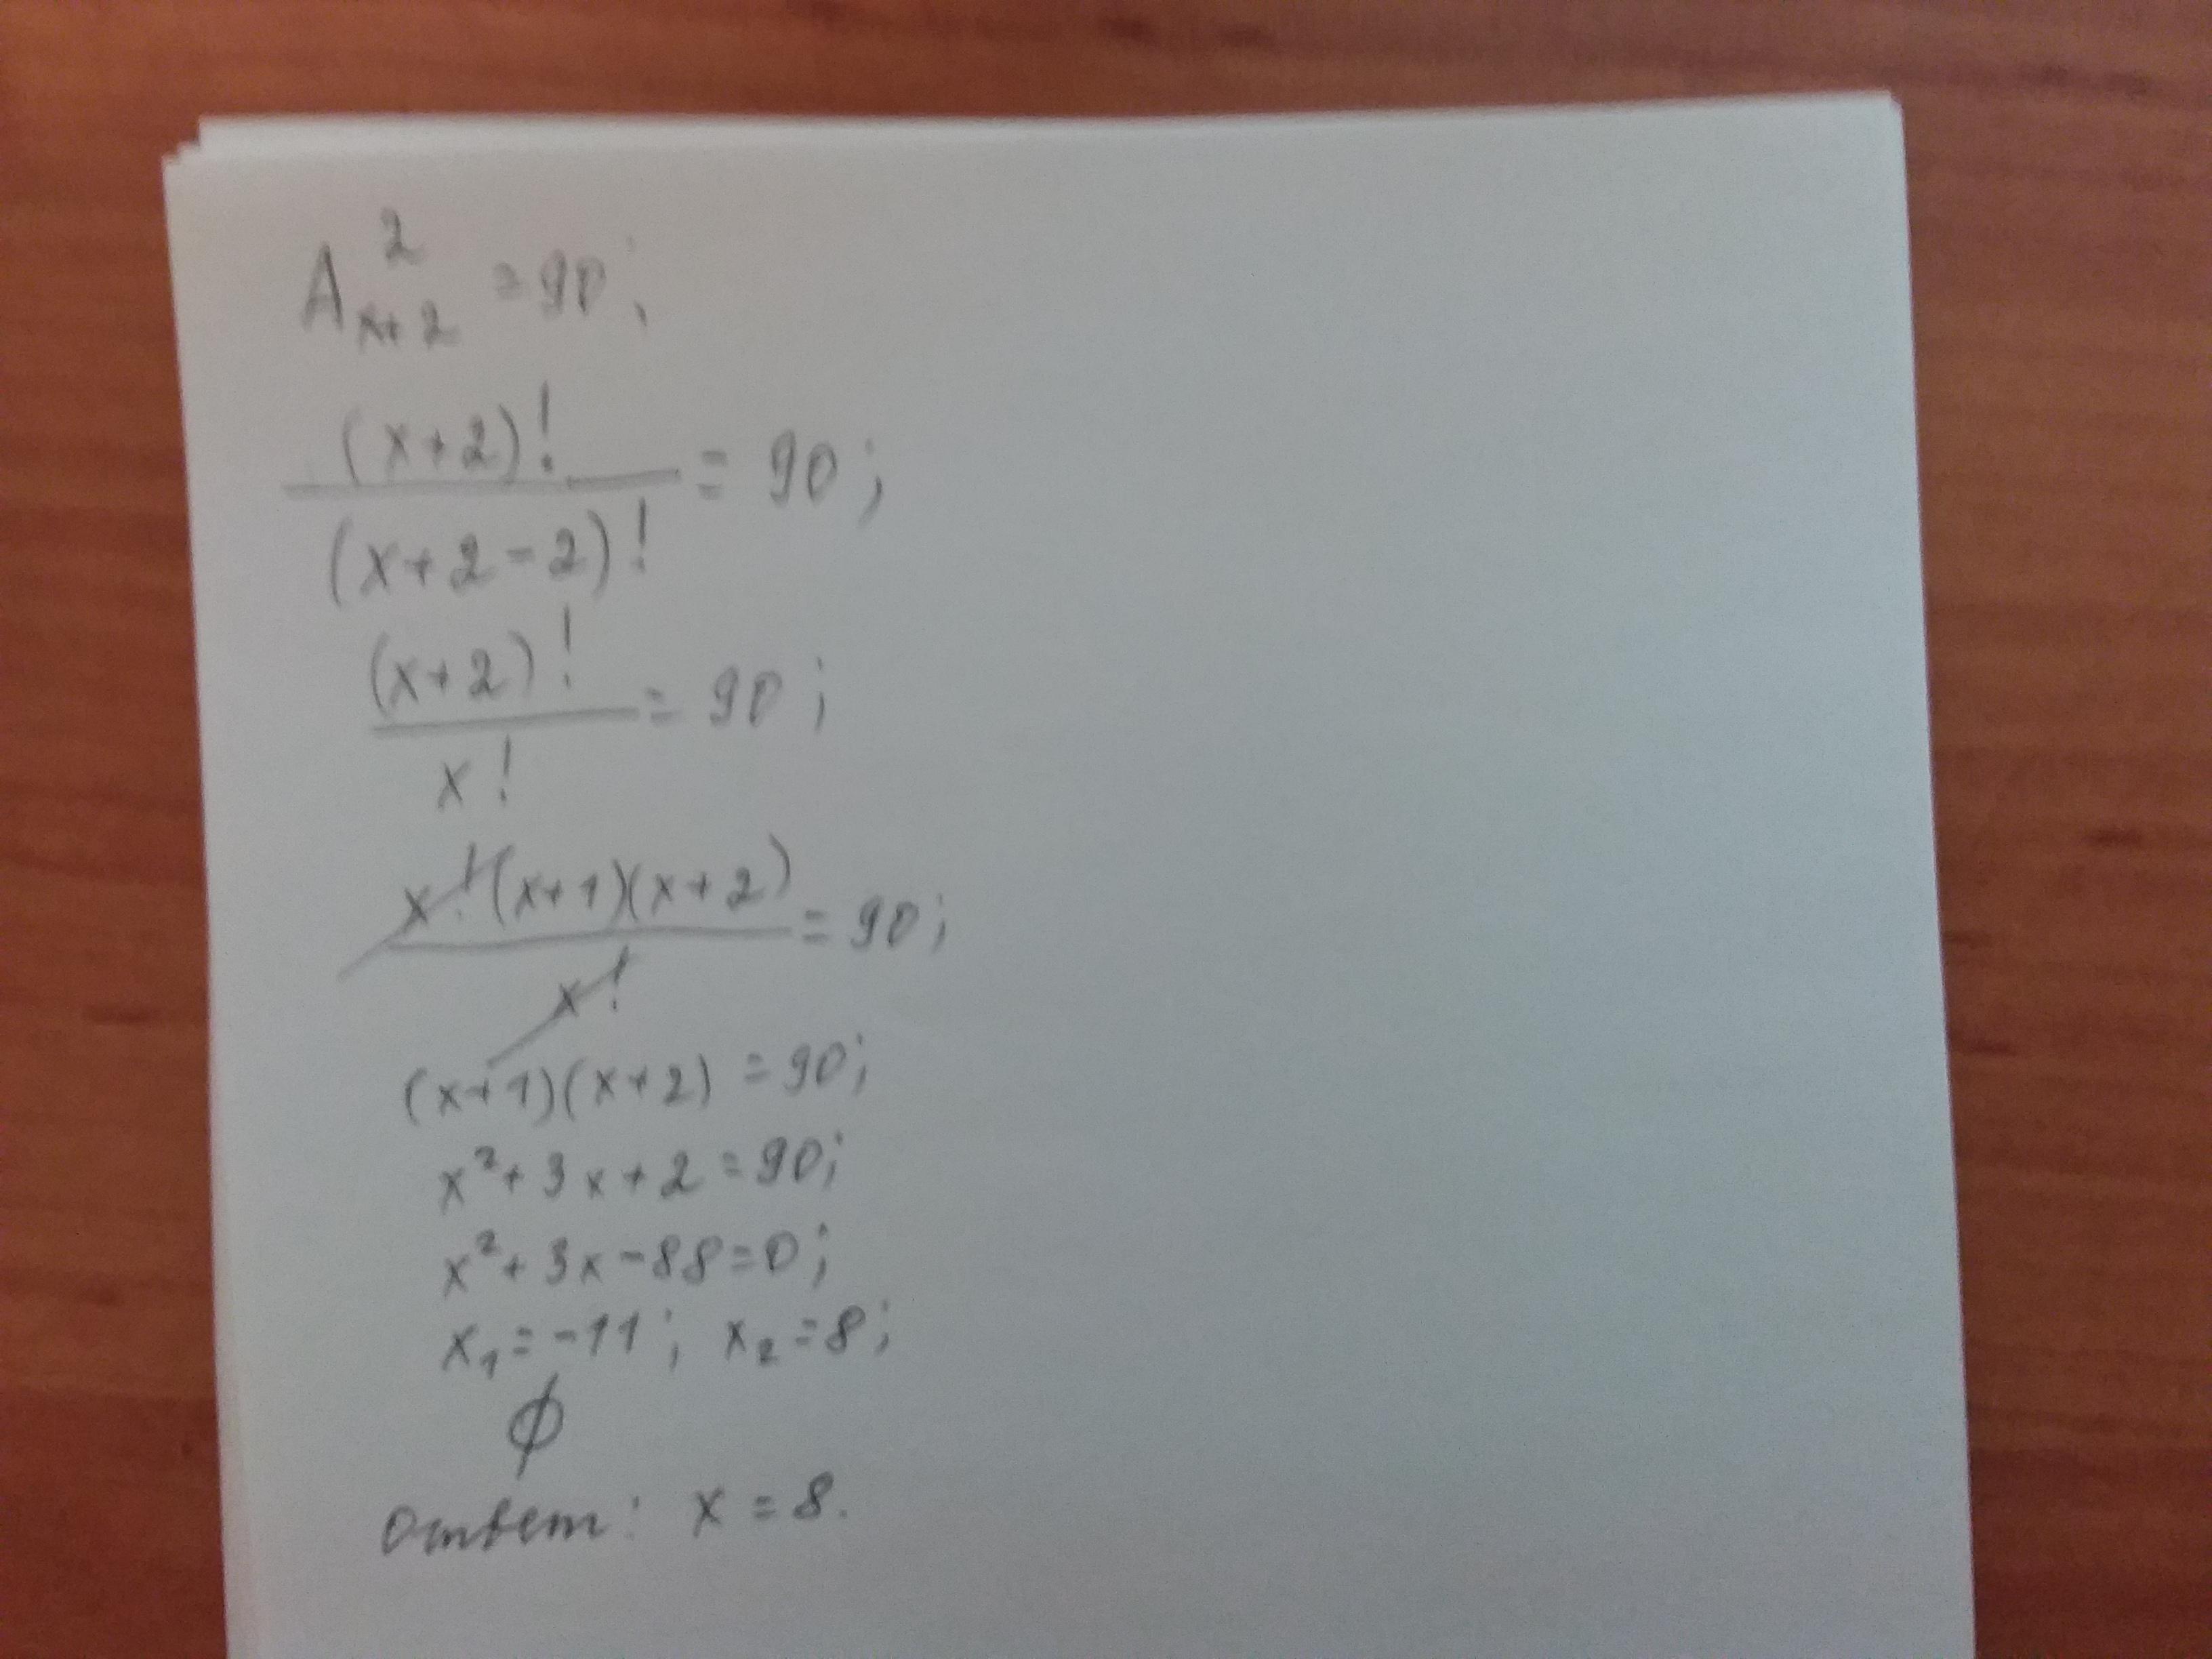 A²ₓ₊₂ = 90;
(x+2)! / (x+2-2)! = 90;
(x+2)! / x! = 90;
x!(x+1)(x+2) / x! = 90;
(x+1)(x+2) = 90;
x² + 3x + 2 = 90;
x² + 3x - 88 = 0;
x₁ = -11; x₂ = 8;
∅
Ответ: x = 8.